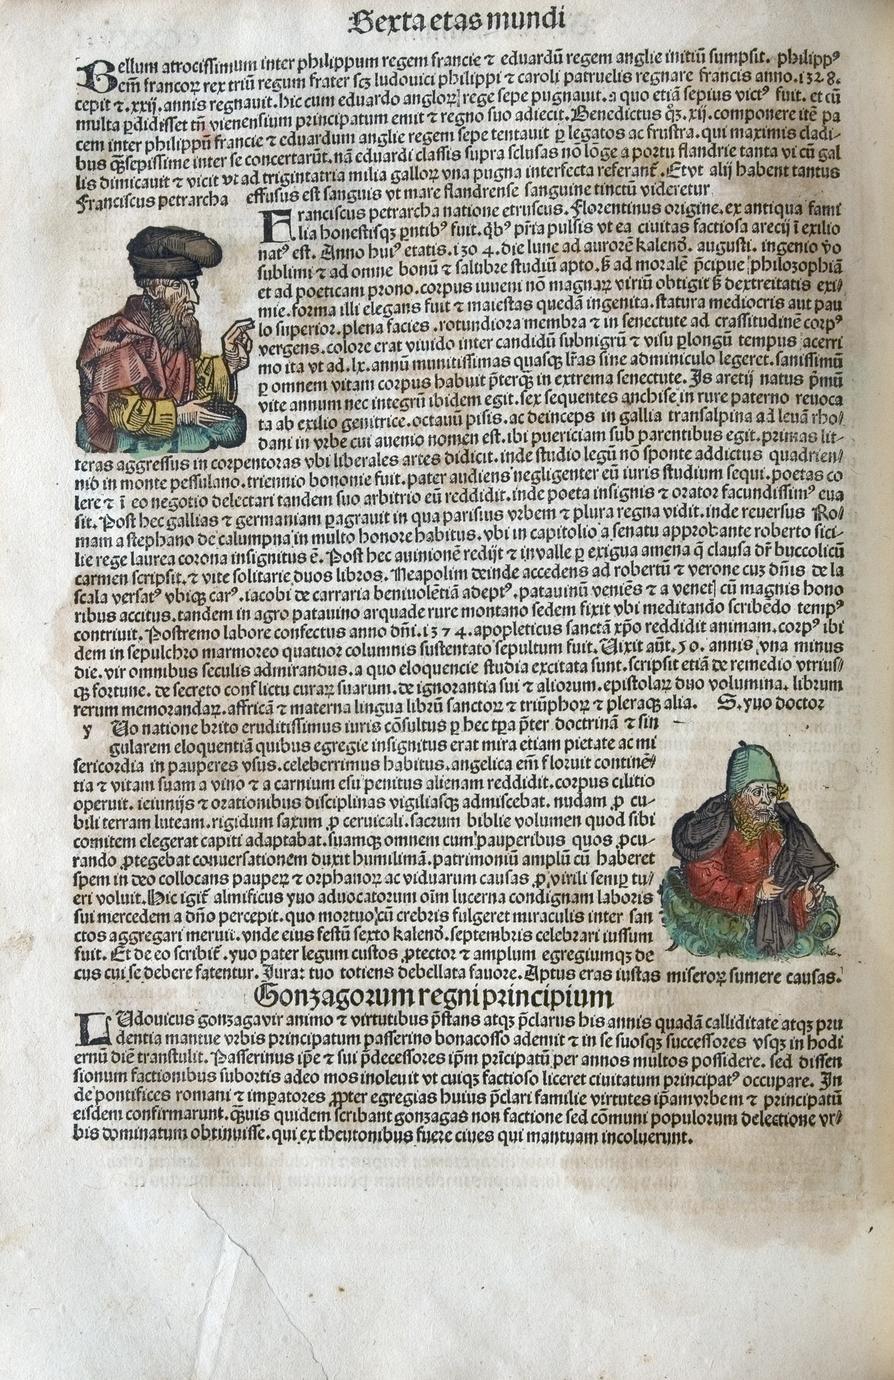 Sexta etas mundi
Bellum atrocissimum inter philippum regem francie ⁊ eduardū regem anglie initiū sumpsit. philippꝰ
em̄ francoꝝ rex triū regum frater scꝫ ludouici philippi ⁊ caroli patruelis regnare francis anno.1328.
cepit ⁊.xxij.annis regnauit.hic cum eduardo angloꝝ rege sepe pugnauit.a quo etiā sepius victꝰ fuit.et cū
multa ꝑdidisset tn̄ vienensium principatum emit ⁊ regno suo adiecit.Benedictus qꝫ.xij.componere itē pa
cem inter philippū francie ⁊ eduardum anglie regem sepe tentauit ꝑ legatos ac frustra.qui maximis cladi-
bus qꝫsepissime inter se concertarūt.nā eduardi classis supra sclusas nō lōge a portu flandrie tanta vi cū gal
lis dimicauit ⁊ vicit vt ad trigintatria milia galloꝝ vna pugna interfecta referant̄.Etvt alij habent tantus
effusus est sanguis vt mare flandrense sanguine tinctū videretur
Franciscus petrarcha
Franciscus petrarcha natione etruscus.Florentinus origine.ex antiqua fami
lia honestisqꝫ pn̄tibꝰ fuit.q̄bꝰ pr̄ia pulsis vt ea ciuitas factiosa arecij ī exilio
natꝰ est.Anno huiꝰ etatis.1304.die lune ad aurorē kalend̄.augusti.ingenio v̄o
sublimi ⁊ ad omne bonū ⁊ salubre studiū apto.s̄ ad moralē p̄cipue philozophiā
et ad poeticam prono.corpus iuueni nō magnaꝝ viriū obtigit s̄ dextreitatis exi/
mie.forma illi elegans fuit ⁊ maiestas quedā ingenita.statura mediocris aut pau
lo superior.plena facies.rotundiora membra ⁊ in senectute ad crassitudinē corpꝰ
vergens.colore erat viuido inter candidū subnigrū ⁊ visu ꝑlongū tempus acerri
mo ita vt ad.lx.annū munitissimas quasqꝫ lr̄as sine adminiculo legeret.sanissimū
ꝑ omnem vitam corpus habuit p̄terqꝫ in extrema senectute.Is aretij natus p̄mū
vite annum nec integrū ibidem egit.sex sequentes anchise in rure paterno reuoca
ta ab exilio genitrice.octauū pisis.ac deinceps in gallia transalpina ad leuā rho/
dani in vrbe cui auenio nomen est.ibi puericiam sub parentibus egit.primas lit-
teras aggressus in corpentoras vbi liberales artes didicit.inde studio legū nō sponte addictus quadrien/
nio in monte pessulano.triennio bononie fuit.pater audiens negligenter eū iuris studium sequi.poetas co
lere ⁊ ī eo negotio delectari tandem suo arbitrio eū reddidit.inde poeta insignis ⁊ orator facundissimꝰ eua
sit.Post hec gallias ⁊ germaniam ꝑagrauit in qua parisius vrbem ⁊ plura regna vidit.inde reuersus Ro/
mam a stephano de calumpna in multo honore habitus.vbi in capitolio a senatu approbante roberto sici-
lie rege laurea corona insignitus ē.Post hec auinionē redijt ⁊ invalle ꝑ exigua amena q̄ clausa dr̄ buccolicū
carmen scripsit.⁊ vite solitarie duos libros.Neapolim deinde accedens ad robertū ⁊ verone cuꝫ dn̄is de la
scala versatꝰ vbiqꝫ carꝰ.iacobi de carraria beniuolētiā adeptꝰ.patauinū veniēs ⁊ a venet̄ cū magnis hono
ribus accitus.tandem in agro patauino arquade rure montano sedem fixit vbi meditando scribēdo tempꝰ
contriuit.Postremo labore confectus anno dn̄i.1374.apopleticus sanctā xp̄o reddidit animam.corpꝰ ibi
dem in sepulchro marmoreo quatuor columnis sustentato sepultum fuit.Uixit aūt.70.annis vna minus
die.vir omnibus seculis admirandus.a quo eloquencie studia excitata sunt.scripsit etiā de remedio vtrius/
qꝫ fortune.de secreto conflictu curaꝝ suarum.de ignorantia sui ⁊ aliorum.epistolaꝝ duo volumina.librum
rerum memorandaꝝ.affricā ⁊ materna lingua librū sanctoꝝ ⁊ triūphoꝝ ⁊ pleraqꝫ alia. S.yuo doctor
y Uo natione brito eruditissimus iuris cōsultus ꝑ hec tꝑa p̄ter doctrinā ⁊ sin
gularem eloquentiā quibus egregie insignitus erat mira etiam pietate ac mi
sericordia in pauperes vsus.celeberrimus habitus.angelica em̄ floruit continē/
tia ⁊ vitam suam a vino ⁊ a carnium esu penitus alienam reddidit.corpus cilitio
operuit.ieiunijs ⁊ orationibus disciplinas vigiliasqꝫ admiscebat.nudam ꝓ cu-
bili terram luteam.rigidum saxum ꝓ ceruicali.sacrum biblie volumen quod sibi
comitem elegerat capiti adaptabat.suamqꝫ omnem cum pauperibus quos ꝓcu-
rando ꝓtegebat conuersationem duxit humilimā.patrimoniū amplū cū haberet
spem in deo collocans paupeꝝ ⁊ orphanoꝝ ac viduarum causas ꝓ virili semꝑ tu/
eri voluit.Hic igit̄ almificus yuo aduocatorum oīm lucerna condignam laboris
sui mercedem a dn̄o percepit.quo mortuo cū crebris fulgeret miraculis inter san
ctos aggregari meruit.vnde eius festū sexto kalend̄.septembris celebrari iussum
fuit.Et de eo scribit̄.yuo pater legum custos ꝓtector ⁊ amplum egregiumqꝫ de
cus cui se debere fatentur.Iura: tuo totiens debellata fauore.Aptus eras iustas miseroꝝ sumere causas.
Gonzagorum regni principium
LUdouicus gonzagavir animo ⁊ virtutibus p̄stans atqꝫ p̄clarus his annis quadā calliditate atqꝫ pru
dentia mantue vrbis principatum passerino bonacosso ademit ⁊ in se suosqꝫ successores vsqꝫ in hodi
ernū diē transtulit.Passerinus ip̄e ⁊ sui p̄decessores ip̄m prīcipatū per annos multos possidere.sed dissen
sionum factionibus subortis adeo mos inoleuit vt cuiqꝫ factioso liceret ciuitatum principatꝰ occupare.In
de pontifices romani ⁊ imꝑatores ꝓpter egregias huius p̄clari familie virtutes ip̄amvrbem ⁊ principatū
eisdem confirmarunt.qꝫuis quidem scribant gonzagas non factione sed cōmuni populorum delectione vr/
bis dominatum obtinuisse.qui ex theutonibus fuere ciues qui mantuam incoluerunt.